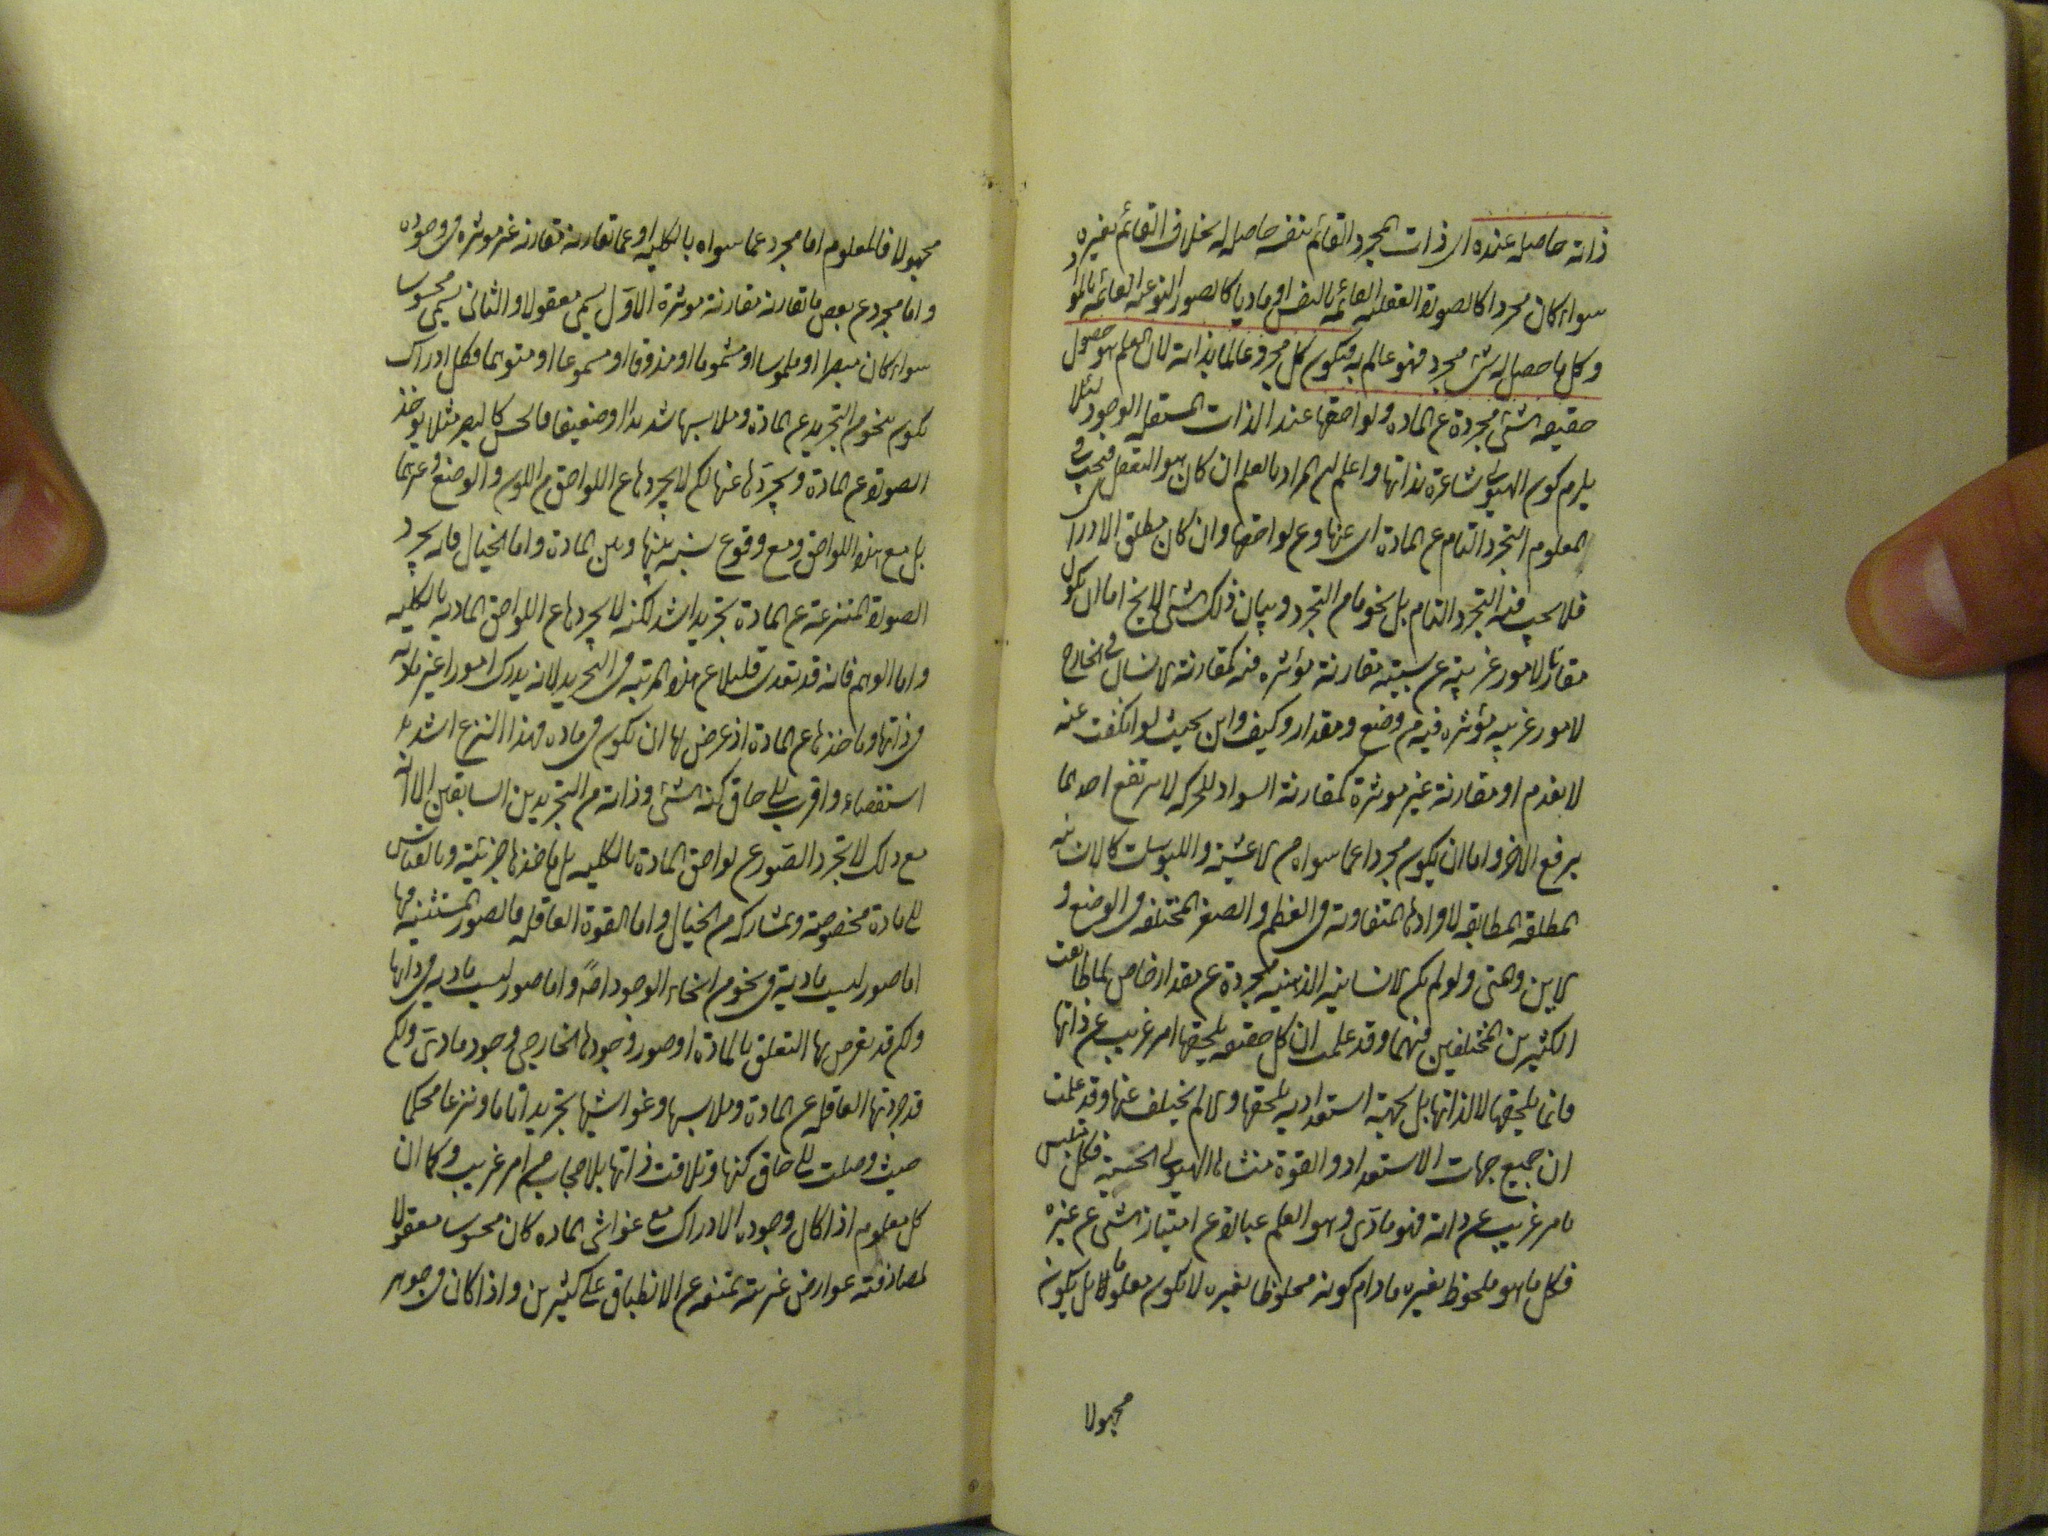 ذاته حاصلة عنده اى ذات المجرد القائم بنفسه حاصلة له بخلاف القائم بغيره
سواء كان مجردا كالصورة العقلية القائمة بالنفس او ماديا كالصور النوعية القائمة بالمواد
وكل ما حصل له شئ مجرد فهو عالم به فيكون كل مجرد عالما بذاته لان العلم هو حصول
حقيقة الشئ مجردة عن المادة ولواحقها عند الذات المستقلة الوجود لئلا
يلزم كون الهيولى شاعرة بذاتها واعلم ان المراد بالعلم ان كان هو التعقل فيجب فى
المعلوم التجرد التام عن المادة اى عنها وعن لواحقها وان كان مطلق الادراك
فلا يجب فيه التجرد التام بل نحو ما من التجرد وبيان ذلك الشئ لا يخ اما ان يكون
مقارنا لامور غريبة عن سببه مقارنة مؤثره فيه كمقارنة الانسان فى الخارج
لامور غريبه مؤثره فيه من وضع ومقدار وكيف واين بحيث لو انكفت عنه
لا نعدم او مقارنة غير موثرة كمقارنة السواد للحركه لا يرتفع احدهما
برفع الاخر واما ان يكون مجردا عما سواه من الاغشية واللبوسات كالانسانية
المطلقة المطابقة لافرادها المتفاوتة فى العظم والصغر المختلفه فى الوضع و
الاين ومتى ولو لم تكن الانسانية الذهنية مجردة عن مقدار خاص لما طابقت
الكثيرين المختلفين فيهما وقد علمت ان كل حقيقة يلحقها امر غريب عن ذاتها
فانما يلحقها لا لذاتها بل لجهة استعدادية يلحقها والا لم يختلف عنها وقد علمت
ان جميع جهات الاستعداد والقوة منشاها الهيولى الجسمية فكل متلبس
بامر غريب عن ذاته فهو مادى وهو العلم عبارة عن امتياز الشئ عن غيره
فكل ما هو ملحوظ بغيره مادام كونه محلوظا بغيره لا يكون معلوما بل يكون
مجهولا
مجهولا فالمعلوم اما مجرد عما سواه بالكليه او عما تقارنه مقارنة غير موثره فى وجوده
واما مجرد عن بعض ما تقارنه مقارنة موثرة الاول يسمى معقولا والثانى يسمى محسوسا
سواء كان مبصرا او ملموسا او مشموما او مذوقا او مسموعا او متوهما فكل ادراك
يكون بنحو من التجريد عن المادة وملابسها شديدا او ضعيفا فالحس كالبصر مثلا يوخذ
الصورة عن المادة ويجردها عنها لكن لا يجردها عن اللواحق من اللون والوضع وغيرهما
بل مع هذه اللواحق ومع وقوع نسبة بينها وبين المادة واما الخيال فانه يجرد
الصورة المنتزعة عن المادة تجريدا اشد لكنه لا يجردها عن اللواحق المادية بالكليه
واما الوهم فانه قد تعدى قليلا عن هذه المرتبة فى التجريد لانه يدرك امورا غير مادية
فى ذاتها وياخذها عن المادة اذ عرض لها ان تكون فى ماده فهذا النزع اشد
استقصاء واقرب الى حاق كنه الشئ وذاته من التجريدين السابقين الا انه
مع ذلك لا تجرد الصور عن لواحق المادة بالكليه بل ياخذها جزئية وبالقياس
الى مادة مخصوصة وبمشاركة من الخيال واما القوة العاقلة فالصور المستثبتة فيها
اما صور ليست مادية فى نحو من انحاء الوجود اصلا واما صور ليست ماديه فى ذاتها
ولكن قد يعرض بها التعلق بالمادة او صور وجودها الخارجى وجود مادى ولكن
قد جردتها العاقلة عن المادة وملابسها وغواشيها تجريدا تاما ونزعا محكما
حيث وصلت الى حاق كنهها وتلاقت ذاتها بلا حجاب من امر غريب وكما ان
كل معلوم اذا كان وجوده الادراك مع غواشى المادة كان محسوسا معقولا
لمصادفته عوارض غريبة تمنعه عن الانطباق على كثيرين واذا كان وجوده